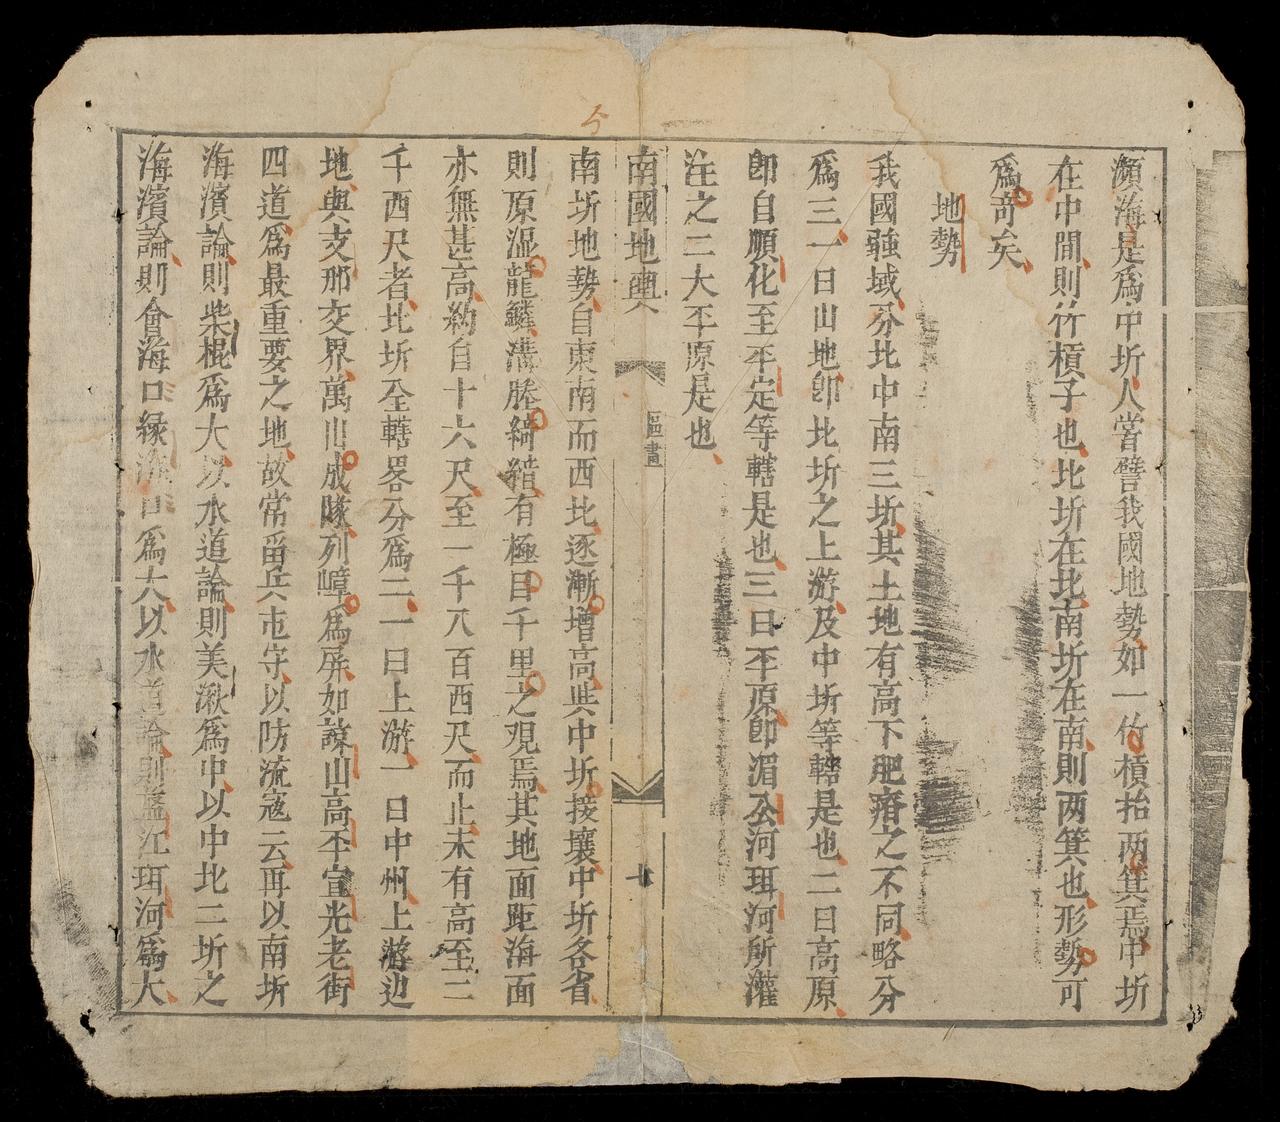 瀕海是爲中圻人嘗譬我國地勢如一竹槓抬两箕焉中圻
在中間則竹槓子也北圻在北南圻在南則两箕也形勢可
爲奇矣
地勢
我國疆域分北中南三圻其土地有高下肥瘠之不同略分
爲三一曰山地卽北圻之上游及中圻等轄是也二曰高原
卽自順化至平定等轄是也三曰平原卽湄公河珥河所灌
注之二大平原是也
南國地輿
區畫
十
南圻地勢自東南而西北逐漸增高與中圻接壤中圻各省
則原湿龍鱗溝塍綺錯有極目千里之观焉其地面距海面
亦無甚高約自十六尺至一千八百西尺而止未有高至二
千西尺者北圻全轄畧分爲二一曰上游一曰中州上游边
地與支那交界萬山成隊列嶂爲屏如諒山高平宣光老街
四道爲最重要之地故常畱兵屯守以防流寇云再以南圻
海濱論則柴棍爲大以水道論則美湫爲中以中北二圻之
海濱論則會海口緣海口爲大以水道論則蓋江珥河爲大